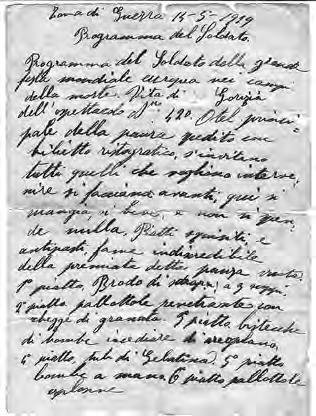 Zona di Guerra 14-5-1919
Programma del Soldato.
Programma del Soldato della grande
festa mondiale acerqua nei campi
della morte. Vita di Gorizia
dell'spettacolo Nro 420. Otel princi
pale della paura
biglietto ristografico, s'invitino
tutti quelli che vogliono interve
nire si faccino avanti, qui si
mangia si beve, e non si spen
de nulla. Piatti squisiti, e
antipasti fame indiscretibile
della premiata detta panza vuota.
1° piatto, Brodo di a 3 raggi
2° piatto pallottole con
schegge di granata. 3 piatto bistecche
di bombe incediare di areoplano,
4° piatto, tubi di Gelatina. 5° piatto
bombe a mano, 6 piatto pallottole
esplosive